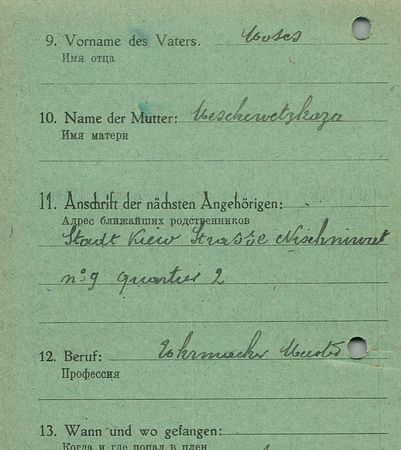 9. Vorname des Vaters. Moses
Имя отца
10. Name der Mutter: Meschewetzkaza
Имя матери
11. Anschrift der nächsten Angehörigen:
Адрес ближайших родственников
Stadt Kiew Strasse Nischniwet
no 9 Quartier 2
12. Beruf: Uhrmacher
Профессия
13. Wann und wo gefangen:
Когда и где попал в плен